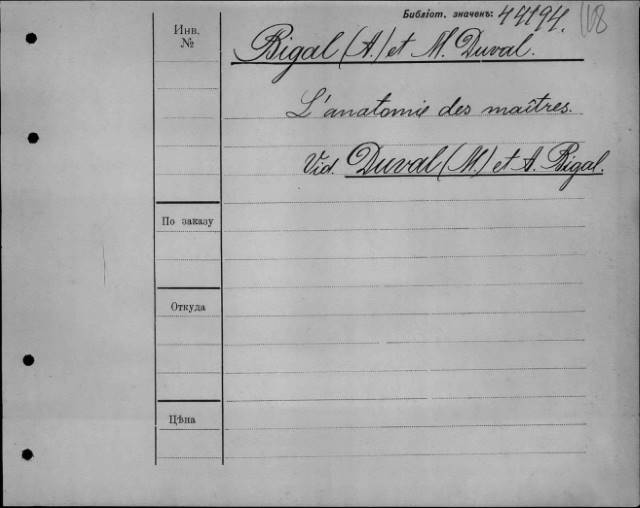 Библіот. значенъ: 44194. 168
Инв.
№
Bigal (A.) et M. Duval.
L'anatomie des maîtres.
Vid. Duval (M.) et A. Bigal.
По заказу
Откуда
Цѣна